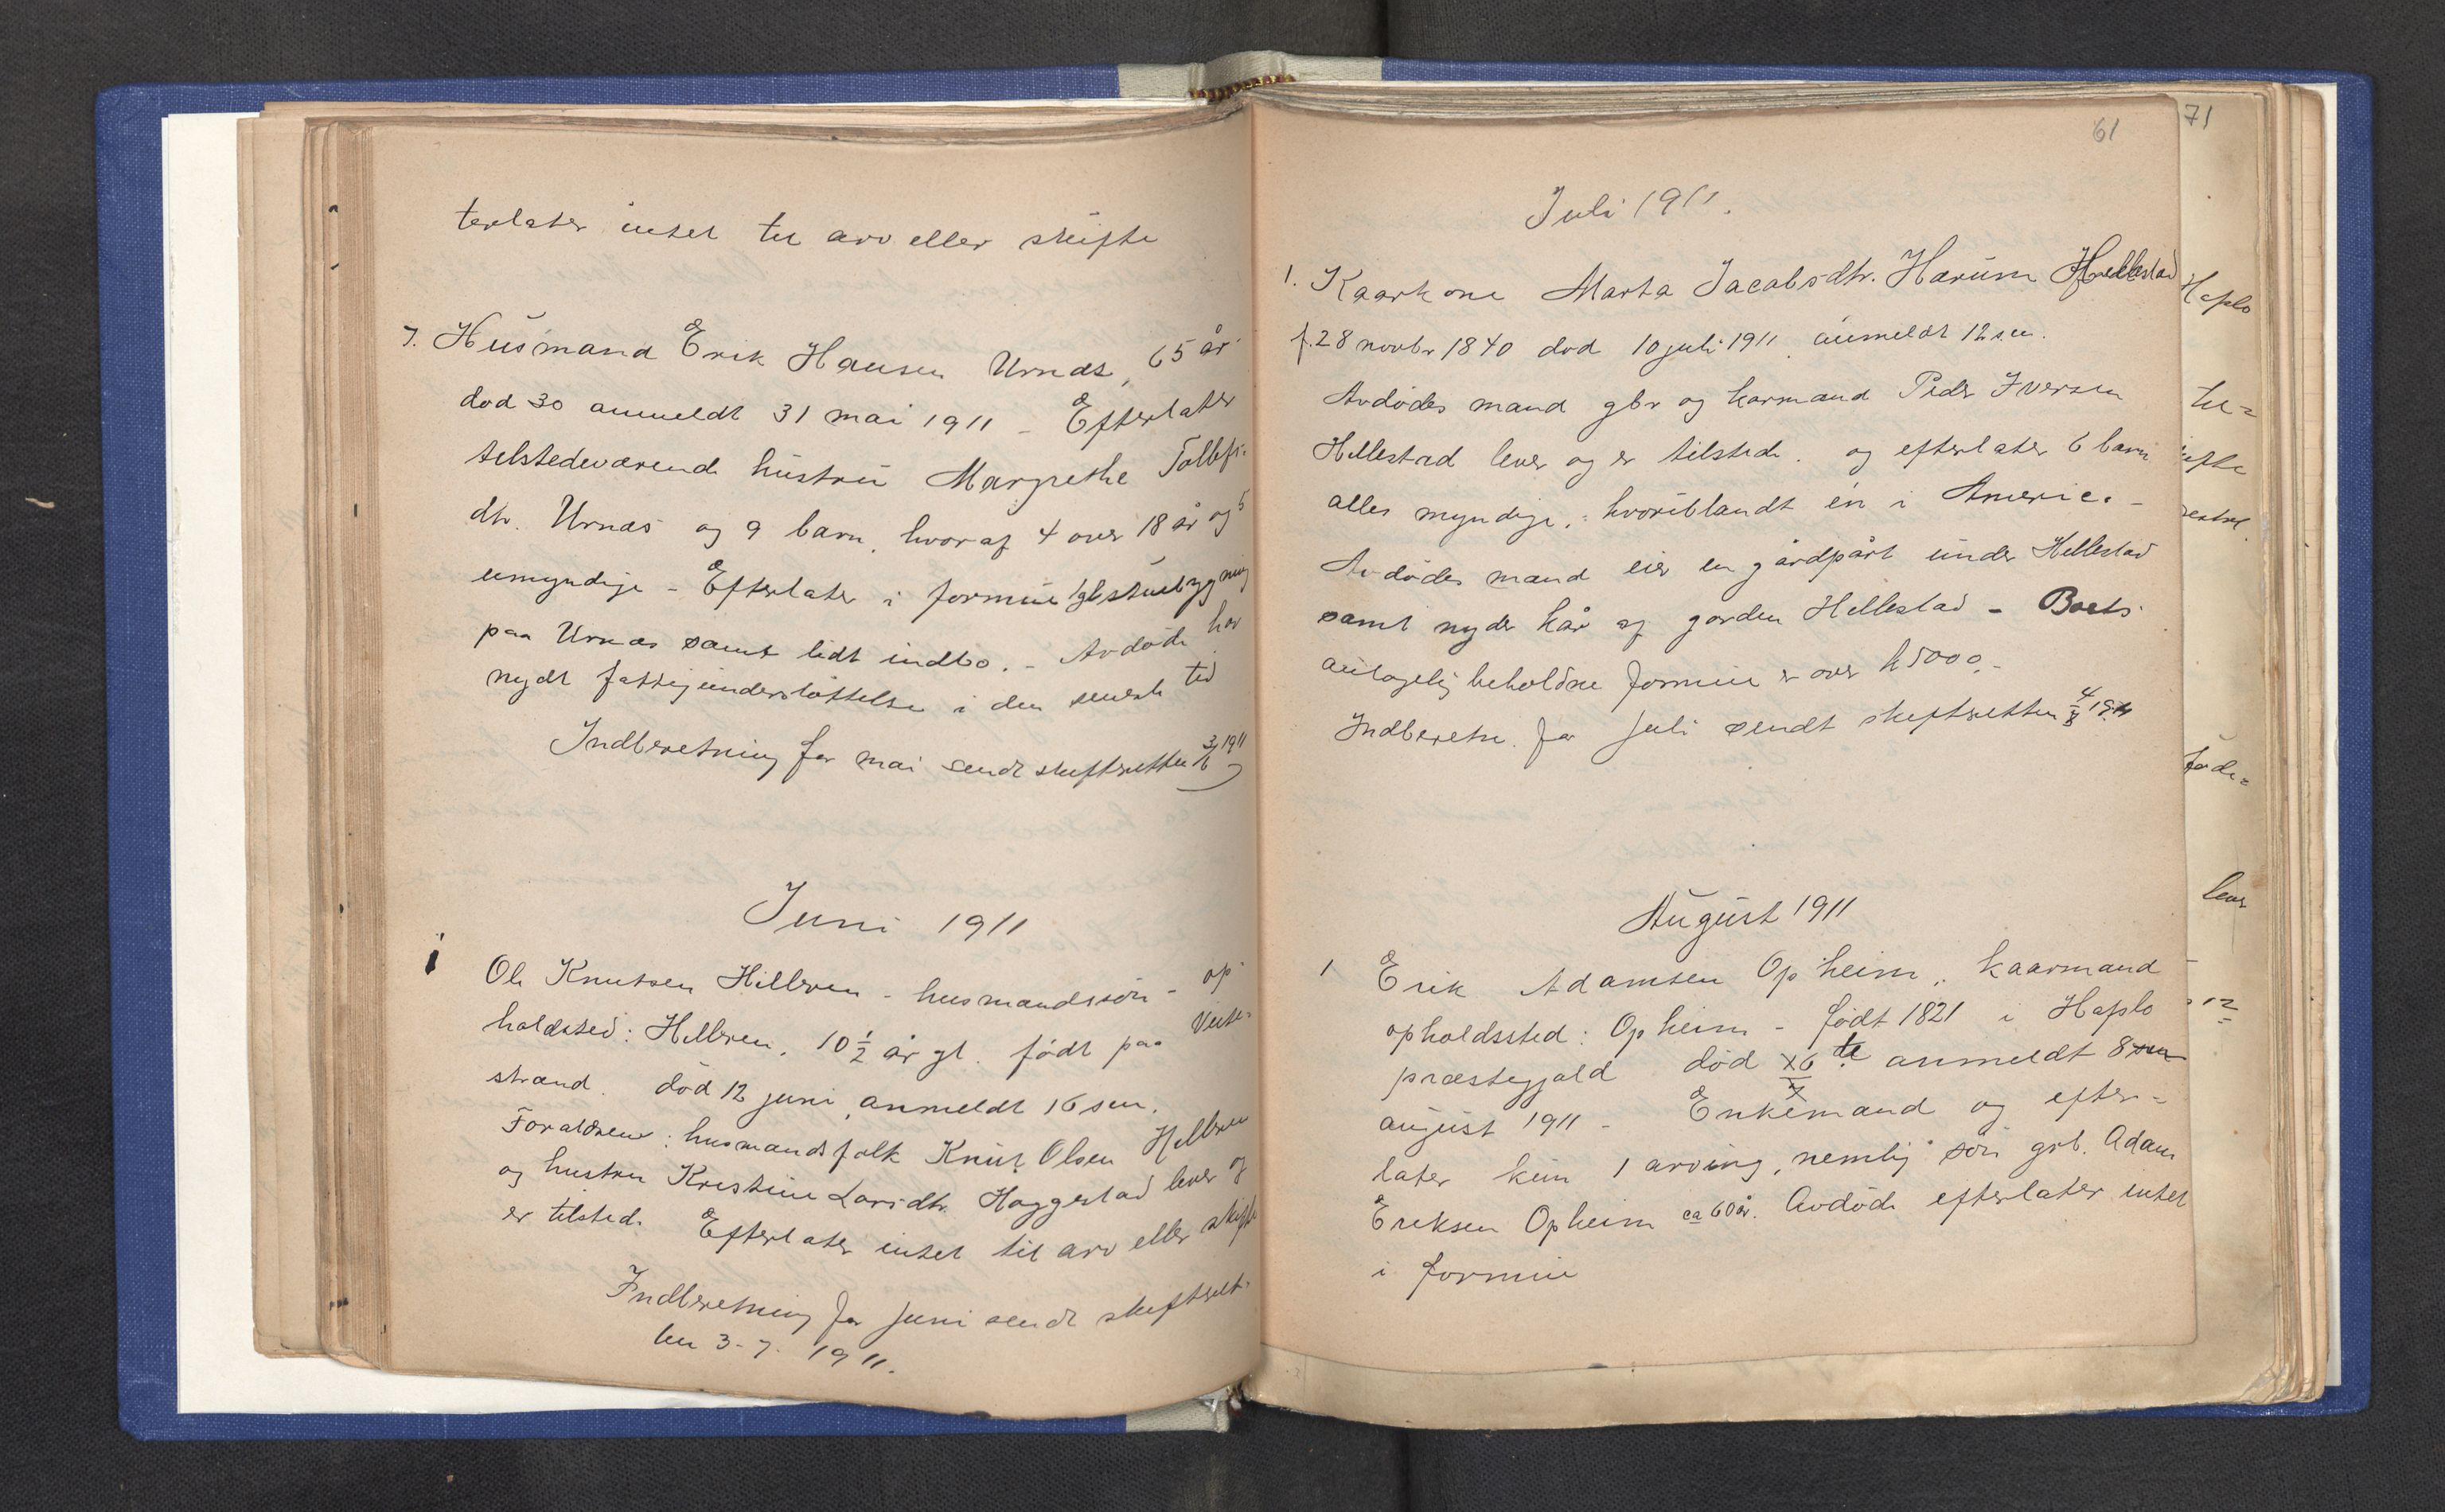 terlater intet til arv eller skifte
7. Husmand Erik Hansen Urnæs, 65 år
død 30 anmeldt 31 mai 1911 - Efterlater
tilstedeværende hustru Margrethe Tollefs-
dtr. Urnæs og 9 barn, hvoraf 4 over 18 år og 5
umyndige - Efterlater i formue 1 gl stuebygning
paa Urnæs samt lidt indbo. - Avdøde har
nydt fattigunderstøttelse i den seneste tid
Indberetning for mai sendt skifteretten 3/6 1911
Juni 1911
1 Ole Knutsen Hilleren - husmandssøn - op-
holdsted: Hilleren, 10 1/2 år gl. født paa Veite-
strand. død 12 juni, anmeldt 16 sm.
Forældrene: husmandsfolk Knut Olsen Hilleren
og hustru Kristine Larsdtr. Haggestad lever og
er tilstede Efterlater intet til arv eller skifte
Indberetning for juni sendt skifteret-
ten 3-7. 1911.
61
Juli 1911.
1. Kaarkone Marta Jacobsdtr. Harum Hillestad
f. 28 novbr 1840 død 10 juli 1911 anmeldt 12 s.m.
Avdødes mand gbr og karmand Peder Iversen
Hillestad lever og er tilstede. og efterlater 6 barn
alles myndige, hvoriblandt én i Americ. -
Avdødes mand eier en gårdpårt under Hillestad
samt nyder kår af garden Hillestad - Boets
antagelig beholdne formue er over k 5000.-
Indberetn. for juli sendt skifteretten 4/8 1911
August 1911
1 Erik Adamsen Opheim, kaarmand
opholdssted: Opheim - født 1821 i Hafslo
præstegjæld død 6te anmeldt 8
august 1911 - Enkemand og efter-
later kun 1 arving, nemlig søn grb. Adam
Eriksen Opheim ca 60 år. Avdøde efterlater intet
i formue
71
Hafslo
til=
lever